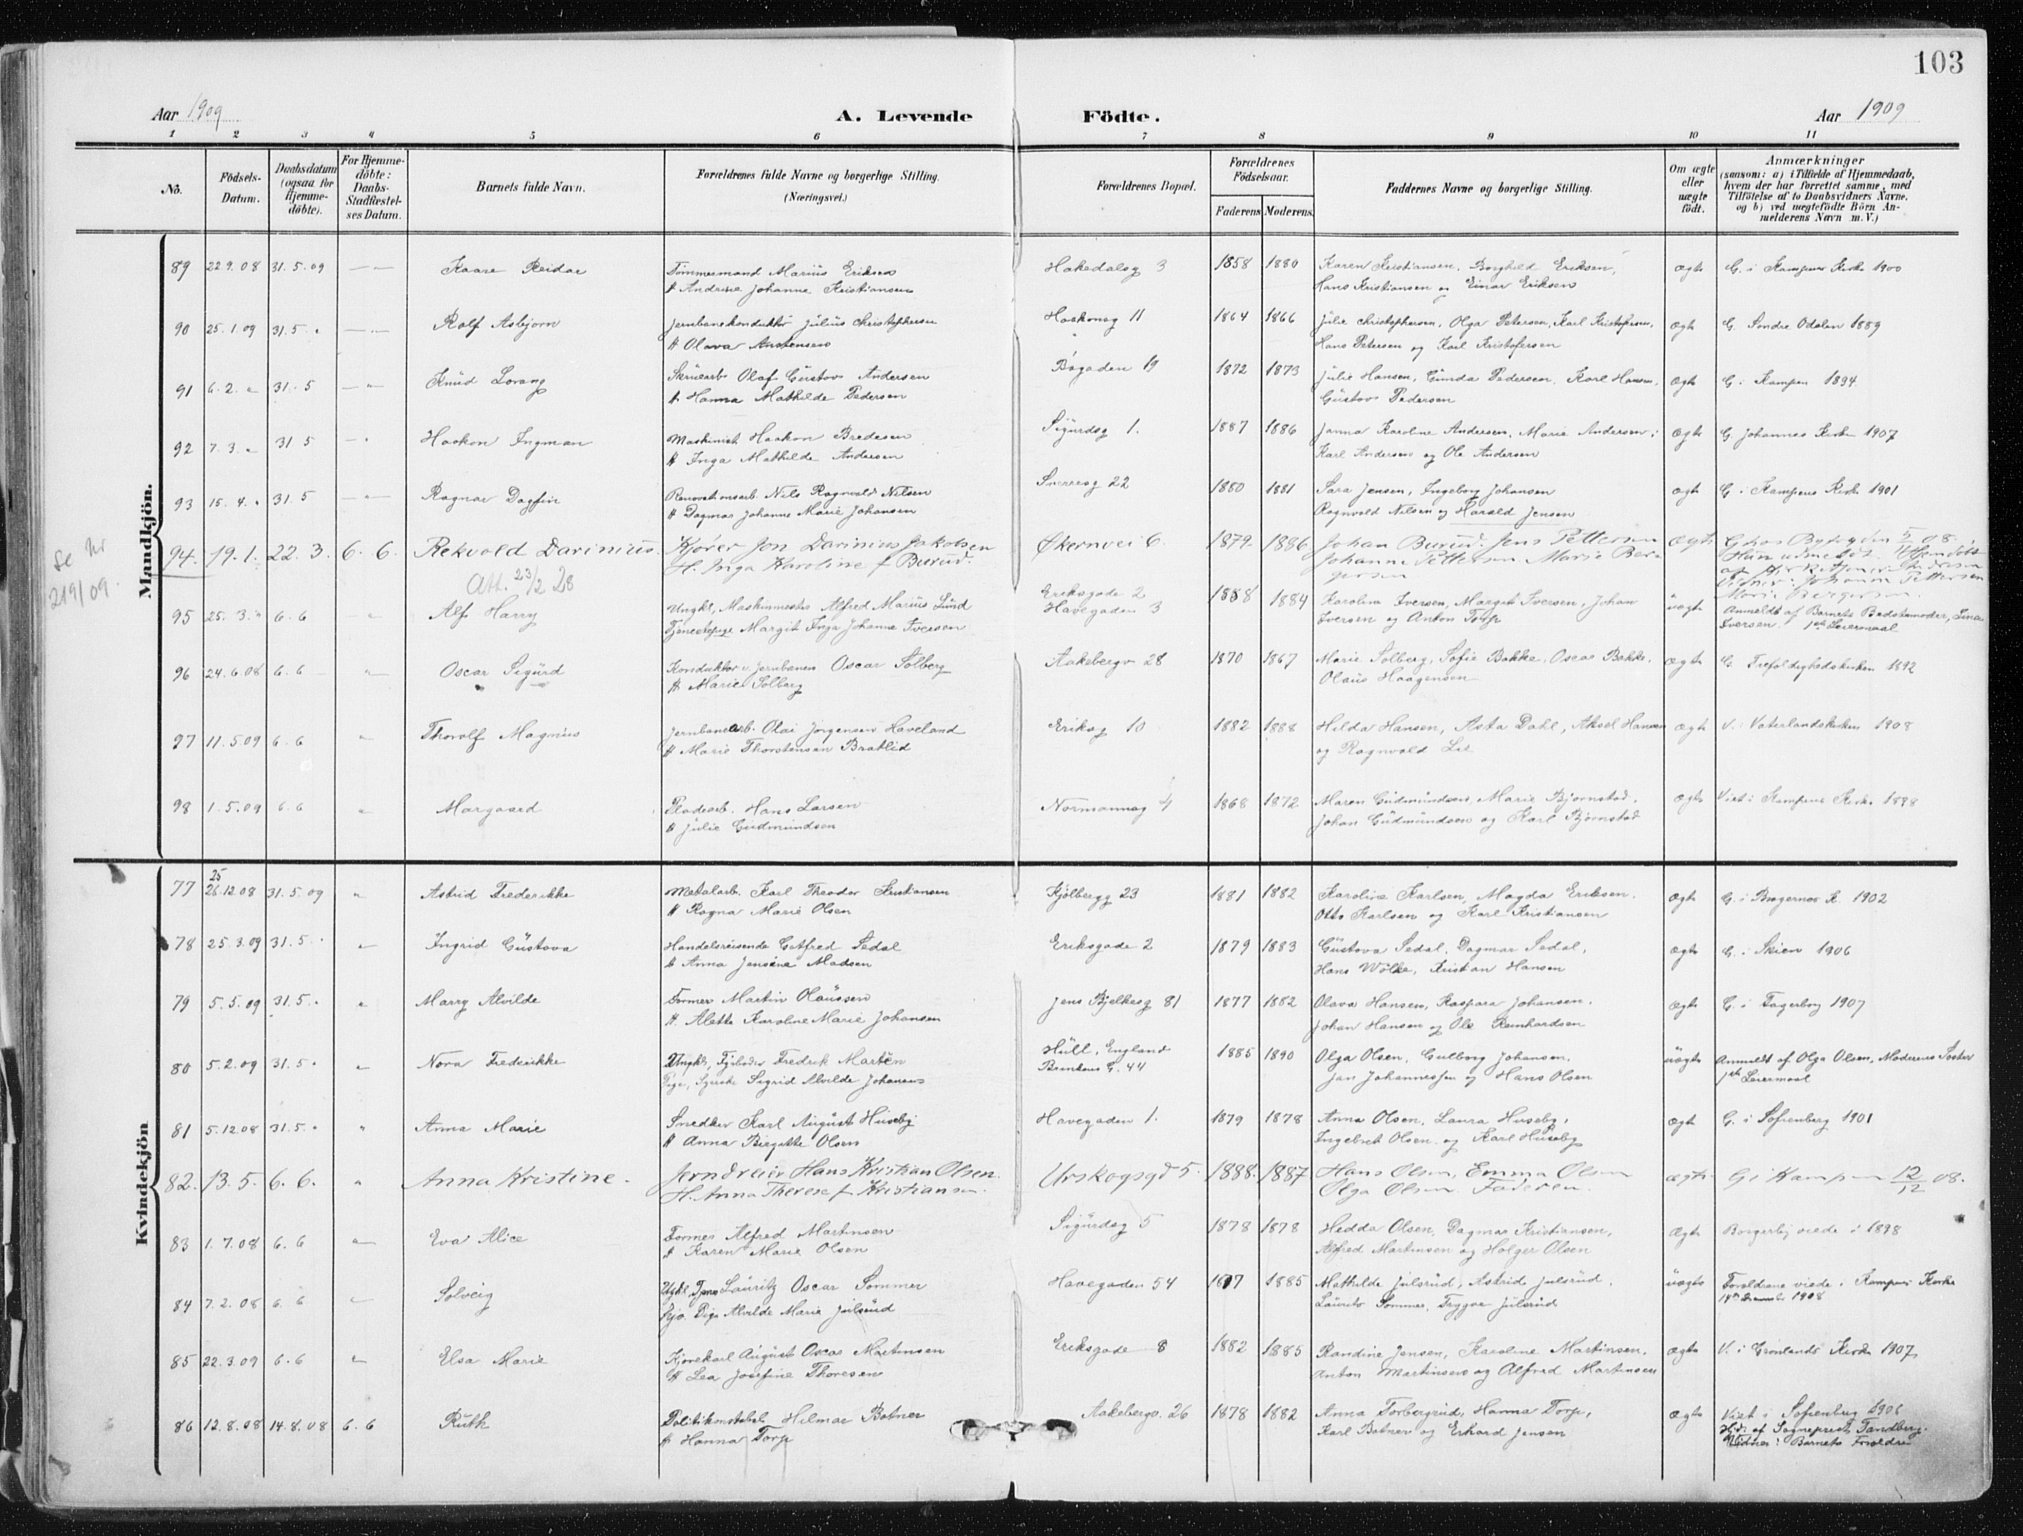 103
Aar 1909
A. Levende Födte.
Aar 1909
1 2 3 4 5 6 7 8 9 10 11
No.
Födsels-Datum.
Daabsdatum (ogsaa for Hjemme-döbte).
For Hjemme-döbte: Daabs-Stadfæstel-ses Datum.
Barnets fulde Navn.
Forældrenes fulde Navne og borgerlige Stilling. (Næringsvei.)
Forældrenes Bopæl.
Forældrenes Födselsaar.
Faderens Moderens
Faddernes Navne og borgerlige Stilling.
Om ægte eller uægte födt.
Anmærkninger
(saasom: a) i Tilfælde af Hjemmedaab,
hvem der har forrettet samme, med
Tilföielse af to Daabsvidners Navne,
og b) ved uægtefödte Börn An-
melderens Navn m. V.)
Mandkjön.
89 22 9. 08 31. 5. 09 Kaare Reidar Tømmermand Marius Eriksen Hakedalsg 3 1858 1880 Karen Kristiansen, Borghild Eriksen, ægte G. i Kampens Kirke 1900
H Andrine Johanne Kristiansen Hans Kristiansen og Einar Eriksen
90 25. 1. 09 31. 5. Rolf Asbjørn Jernbanekonduktør Julius Christophersen Haakonsg 11 1864 1866 Julie Christophersen, Olga Petersen, Karl Kristofersen, ægte G. Søndre Odalen 1889
H Olava Anstensen Hans Petersen og Karl Kristofersen
91 6. 2. 31. 5 Knud Lorang Skruearb. Olaf Gustav Andersen Bøgaden 19 1872 1873 Julie Hansen, Gunda Pedersen, Karl Hansen, ægte G. i Kampen 1894
H. Hanna Mathilde Pedersen Gustav Pedersen
92 7. 3. 31 5 Haakon Ingman Maskinist Haakon Bredesen Sigurdsg 1. 1887 1886 Janna Karoline Andersen, Marie Andersen, ægte G. Johannes Kirke 1907
H Inga Mathilde Andersen Karl Andersen og Ole Andersen
93 15. 4. 31. 5 Ragnar Dagfin Renovationsarb Nils Ragnvald Nilsen Sverresg 22 1880 1881 Sara Jensen, Ingeborg Johansen ægte G. i Kampens Kirke 1901
H Dagmar Johanne Marie Johansen Ragnvald Nilsen og Harald Jensen
Se Nr 219/09.
94. 19. 1. 22. 3. 6. 6. Rekvold Darinius. Kjører Jon Darinius Jakobsen Økernvei 6. 1879 1886 Johan Burud. Jens Pettersen ægte
H. Inga Karoline f Burud. Johanne Pettersen Marie Bergersen
Att. 23/2 28
Vidner: Johanna Pettersen
Marie Bergersen.
95 25. 3. 6. 6 Alf Harry Ungkl, Maskinmester Alfred Marius Lund Eriksgade 2 1888 1884 Karolina Iversen, Margit Iversen, Johan uægte Anmeldt af Barnets Bedstemoder, Lina
Tjenestepige Margit Inga Johanne Iversen Havegaden 3 Iversen og Anton Torp Iversen. 1ste Leiermaal
96 24. 6. 08 6. 6 Oscar Sigurd Konduktør v. Jernbanen Oscar Solberg Aakebergv 28 1870 1867 Marie Solberg, Sofie Bakke, Oscar Bakke, ægte G. Trefoldighedskirken 1892
H Marie Solberg Olaus Haagensen
97 11. 5 09 6. 6 Thorolf Magnus Jernbanearb. Olai Jørgensen Haveland Eriksg 10 1882 1888 Hilda Hansen, Asta Dahl, Aksel Hansen ægte V. i Vaterlandskirken 1908
H Marie Thorstensen Bratlid og Ragnvald Lie
98 1. 5. 09 6 6 Margaard Pladearb. Hans Larsen Normannsg 4 1868 1872 Maren Gudmundsen, Marie Bjørnstad, ægte Viet i Kampens Kirke 1898
H Julie Gudmundsen Johan Gudmundsen og Karl Bjørnstad
Kvindekjön
77 25 26. 12 08 31. 5. 09 Astrid Frederikke Metalarb. Karl Theodor Kristiansen Kjølbergg 23 1881 1882 Karoline Karlsen, Magda Eriksen, ægte G. i Bragernes K. 1902
H Ragna Marie Olsen Otto Karlsen og Karl Kristiansen
78 25. 3. 09 31. 5 Ingrid Gustava Handelsreisende Gotfred Sedal Eriksgade 2 1879 1883 Gustava Sedal, Dagmar Sedal, ægte G. i Skien 1906
H Anna Jensine Madsen Hans Wölke, Kristian Hansen
79 5. 5. 09 31. 5. Marry Alvilde Former Martin Olaussen Jens Bjelkesg 81 1877 1882 Olava Hansen, Kaspara Johansen, ægte G. i Fagerborg 1907
H. Alette Karoline Marie Johansen Johan Hansen og Ole Reinhardsen
80 5. 2. 09 31. 5. Nora Frederikke Ungkl, Fyrbøder Fredrik Martin Hull, England 1885 1890 Olga Olsen, Gulborg Johansen, uægte Anmeldt af Olga Olsen, Moderens Søster
Pige, Syerske Sigrid Alvilde Johansen G. 44 Jan Johannessen og Hans Olsen 1ste Leiermaal
81 5. 12 08 31. 5. Anna Marie Snedker Karl August Huseby Havegaden 1. 1879 1878 Anna Olsen, Laura Huseby, ægte G. i Sofienberg 1901
H Anna Birgitte Olsen Ingebret Olsen og Karl Huseby
82. 13. 5. 6. 6. Anna Kristine. Jerndreier Hans Kristian Olsen. Urskogsgd 5. 1888. 1887 Hans Olsen, Emma Olsen ægte G i Kampen 12/12 08.
H. Anna Therese f Kristiansen. Olga Olsen. Faderen.
83 1. 7. 08 6. 6 Eva Alice Former Alfred Martinsen Sigurdsg 5 1878 1878 Hedda Olsen, Dagmar Kristiansen, ægte Borgerlig viede i 1898
H Karen Marie Olsen Alfred Martinsen og Holger Olsen
84 7. 2. 08 6. 6 Solveig Ungkl Lauritz Oscar Sommer Havegaden 54 1885 Mathilde Julsrud, Astrid Julsrud, uægte Forældrene viede i Kampens Kirke
Pige Alvilde Marie Julsrud Laurits Sommer, Trygve Julsrud 1908
85 22. 3. 09 6. 6 Elsa Marie Kjørekarl August Oscar Martinsen Eriksgade 8 1882 1885 Randine Jensen, Karoline Martinsen, ægte V. i Grønlands Kirke 1907
H Lea Josefine Thoresen Anton Martinsen og Alfred Martinsen
86 12. 8. 08 14. 8. 08 6. 6 Ruth Politikonstabel Hilmar Botner Aakebergv. 26 1878 1882 Anna Torbergrud, Hanna Torp, ægte Viet i Sofienberg 1906
H Hanna Torp Karl Botner og Erhard Jensen Hjd. af Sogneprest Tandberg.
Vidner: Barnets Forældre